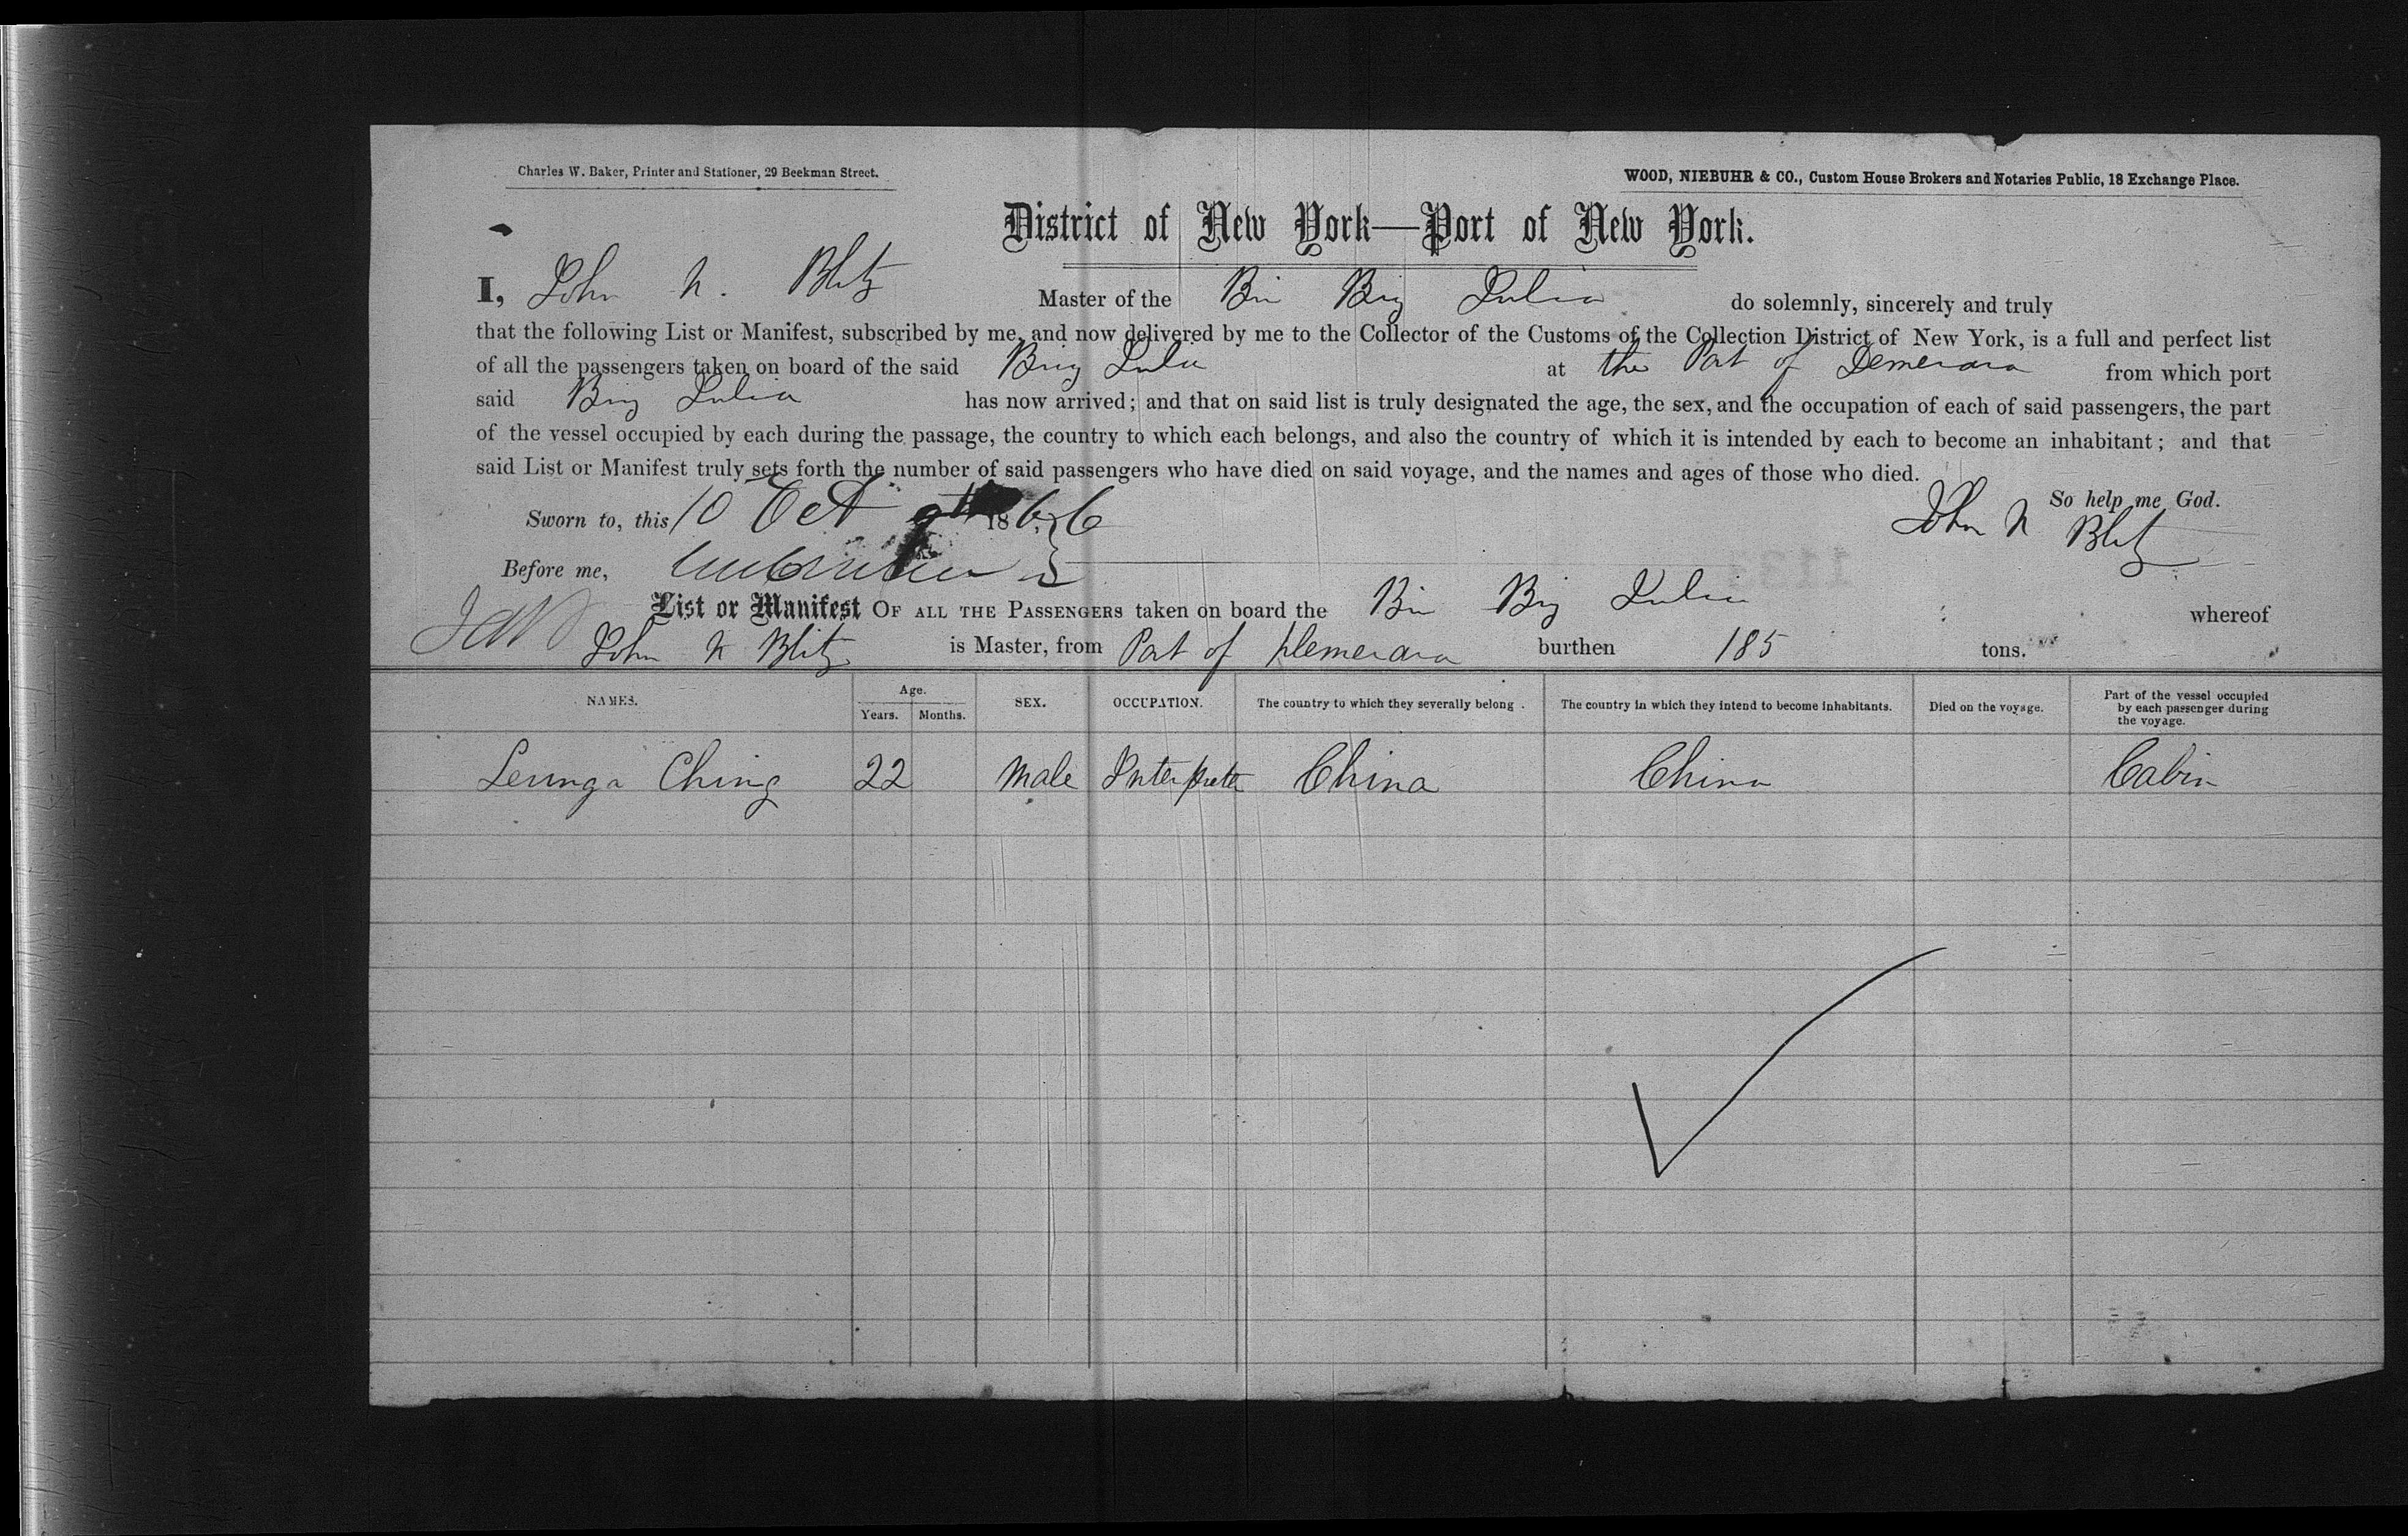 Charles W. Baker, Printer and Stationer, 29 Beekman Street.
WOOD, NIEBUHR & CO., Custom House Brokers and Notaries Public, 18 Exchange Place.
District of New York—Port of New York.
I, John N. Blitz Master of the Brig Julia do solemnly, sincerely and truly
that the following List or Manifest, subscribed by me, and now delivered by me to the Collector of the Customs of the Collection District of New York, is a full and perfect list
of all the passengers taken on board of the said Brig Julia at the Port of Demerara from which port
said Brig Julia has now arrived; and that on said list is truly designated the age, the sex, and the occupation of each of said passengers, the part
of the vessel occupied by each during the passage, the country to which each belongs, and also the country of which it is intended by each to become an inhabitant; and that
said List or Manifest truly sets forth the number of said passengers who have died on said voyage, and the names and ages of those who died.
So help me God.
Sworn to, this 10 Oct 1866 John N Blitz
Before me,
List or Manifest OF ALL THE PASSENGERS taken on board the Brig Julia whereof
John N Blitz is Master, from Port of Demerara burthen 185 tons.
NAMES. Age. Years. Months. SEX. OCCUPATION. The country to which they severally belong. The country in which they intend to become inhabitants. Died on the voyage. Part of the vessel occupied by each passenger during the voyage.
Ching 22 Male Interpreter China China Cabin